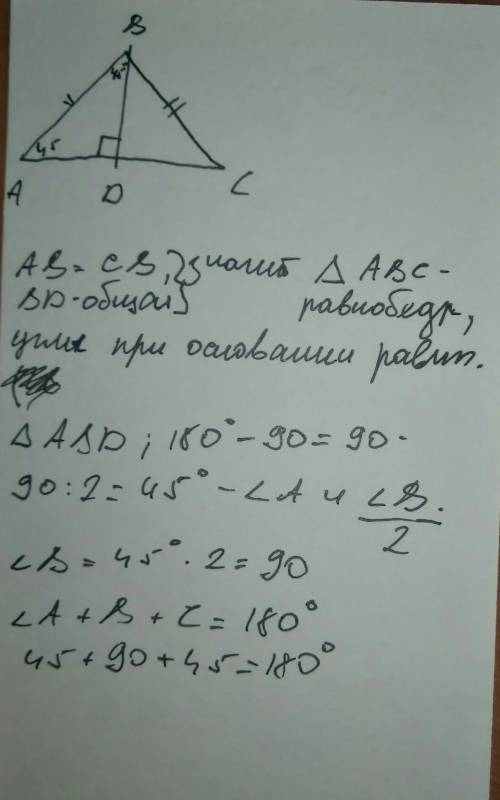 B
45
45
A D C
AB = CB, } значит Δ ABC -
BD - общая } равнобедр,
углы при основании равны.
Δ ABD ; 180° - 90 = 90.
90 : 2 = 45° - ∠A и ∠B.
2
∠B = 45° · 2 = 90
∠A + B + C = 180°
45 + 90 + 45 = 180°